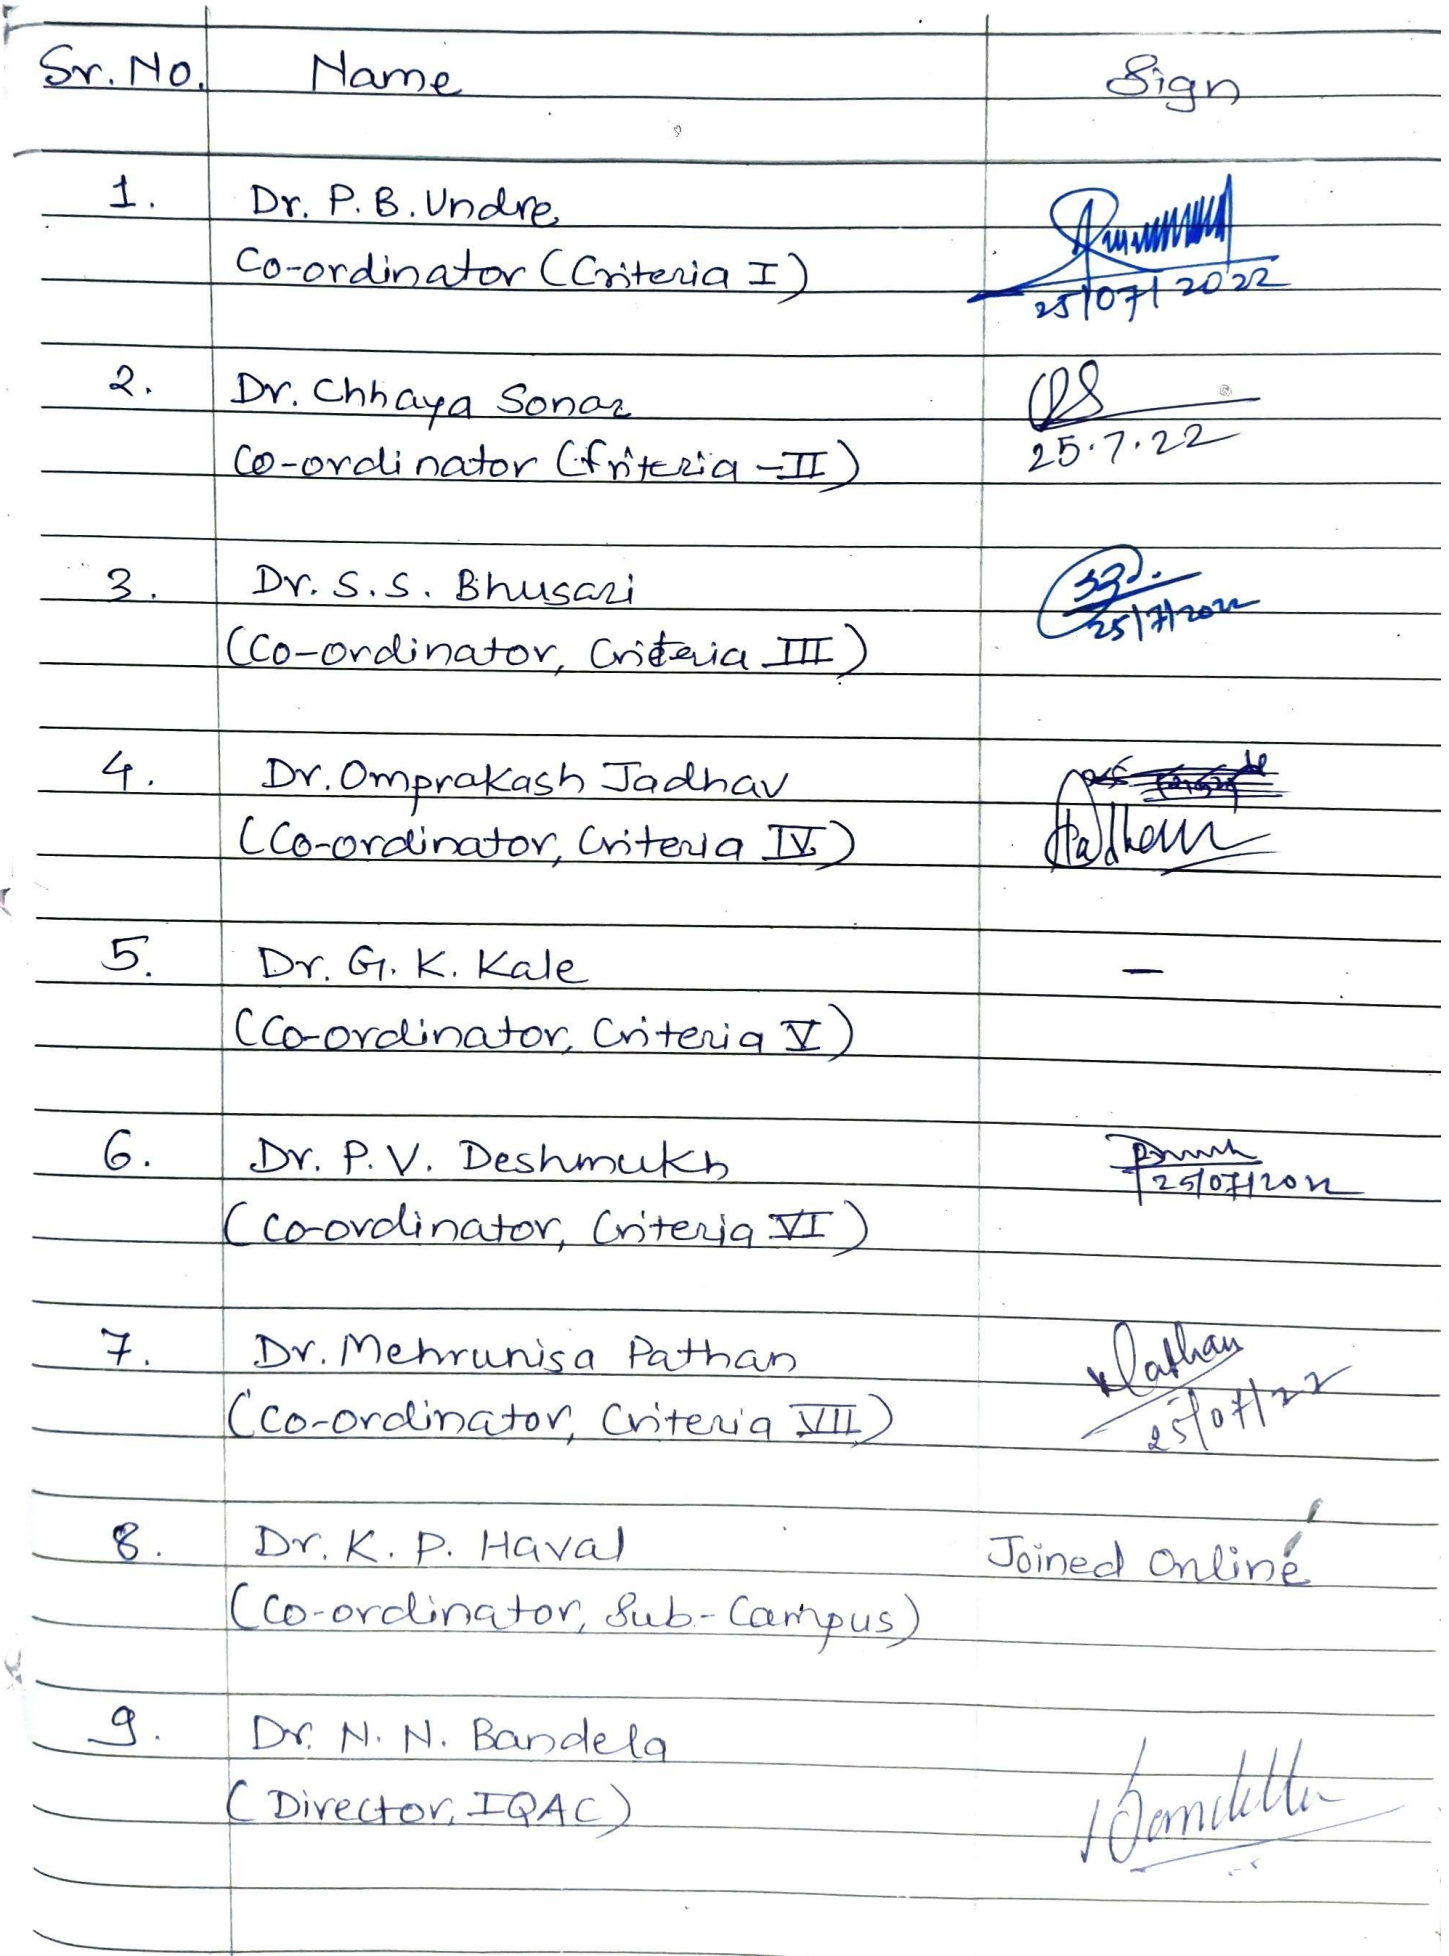 Sr. No. Name Sign
1. Dr. P. B. Undre
Co-ordinator (Criteria I)
25/07/2022
2. Dr. Chhaya Sonar
Co-ordinator (Criteria - II)
25.7.22
3. Dr. S. S. Bhusari
25/7/2022
(Co-ordinator, Criteria III)
4. Dr. Omprakash Jadhav
(Co-ordinator, Criteria IV)
Jadhav
5. Dr. G. K. Kale –
(Co-ordinator, Criteria V)
6. Dr. P. V. Deshmukh
25/07/2022
(Co-ordinator, Criteria VI)
7. Dr. Mehrunisa Pathan Pathan
(Co-ordinator, Criteria VII)
25/07/22
8. Dr. K. P. Haval Joined Online
(Co-ordinator, Sub-Campus)
9. Dr. N. N. Bandela
(Director, IQAC)